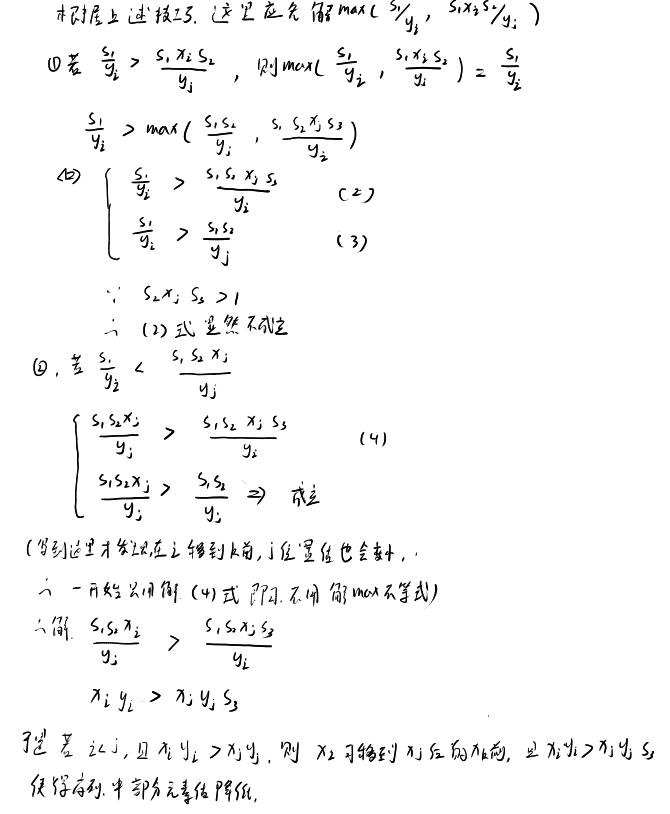 根据上述技巧, 这里应先解 max( S₁/yᵢ , S₁xᵢS₂/yⱼ )
①若 S₁/yᵢ > S₁xᵢS₂/yⱼ , 则max( S₁/yᵢ , S₁xᵢS₂/yⱼ ) = S₁/yᵢ
S₁/yᵢ > max( S₁S₂/yⱼ , S₁S₂xⱼS₃/yᵢ )
⇔ { S₁/yᵢ > S₁S₂xⱼS₃/yᵢ (2)
S₁/yᵢ > S₁S₂/yⱼ (3)
∵ S₂xⱼS₃ > 1
∴ (2)式显然不成立
②, 若 S₁/yᵢ < S₁S₂xⱼ/yⱼ
{ S₁S₂xⱼ/yⱼ > S₁S₂xⱼS₃/yᵢ (4)
S₁S₂xⱼ/yⱼ > S₁S₂/yⱼ ⇒ 成立
(写到这里才发现,在i移到k前, j位置值也会变小,
∴ 一开始只用解 (4)式即可.不用解max不等式)
∴解. S₁S₂xᵢ/yⱼ > S₁S₂xⱼS₃/yᵢ
xᵢyᵢ > xⱼyⱼS₃
于是若 i<j, 且 xᵢyᵢ > xⱼyⱼ, 则 xᵢ可移到 xⱼ后的xₖ前, 且 xᵢyᵢ > xⱼyⱼS₃
使得序列中部分元素值降低.